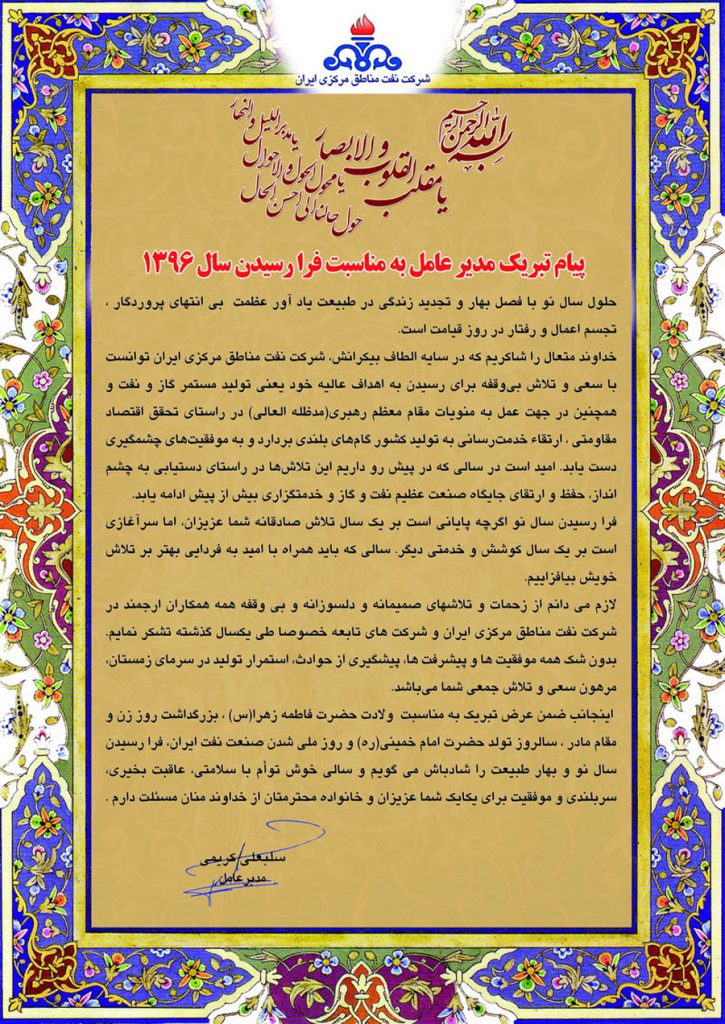 شرکت نفت مناطق مرکزی ایران
بسم الله الرحمن الرحیم
یا مقلب القلوب و الابصار
یا مدبر اللیل و النهار
یا محول الحول و الاحوال
حول حالنا الی احسن الحال
پیام تبریک مدیر عامل به مناسبت فرا رسیدن سال ۱۳۹۶
حلول سال نو با فصل بهار و تجدید زندگی در طبیعت یاد آور عظمت بی انتهای پروردگار ،
تجسم اعمال و رفتار در روز قیامت است.
خداوند متعال را شاکریم که در سایه الطاف بیکرانش، شرکت نفت مناطق مرکزی ایران توانست
با سعی و تلاش بی‌وقفه برای رسیدن به اهداف عالیه خود یعنی تولید مستمر گاز و نفت و
همچنین در جهت عمل به منویات مقام معظم رهبری(مدظله العالی) در راستای تحقق اقتصاد
مقاومتی ، ارتقاء خدمت‌رسانی به تولید کشور گام‌های بلندی بردارد و به موفقیت‌های چشمگیری
دست یابد. امید است در سالی که در پیش رو داریم این تلاش‌ها در راستای دستیابی به چشم
انداز، حفظ و ارتقای جایگاه صنعت عظیم نفت و گاز و خدمتگزاری بیش از پیش ادامه یابد.
فرا رسیدن سال نو اگرچه پایانی است بر یک سال تلاش صادقانه شما عزیزان، اما سرآغازی
است بر یک سال کوشش و خدمتی دیگر. سالی که باید همراه با امید به فردایی بهتر بر تلاش
خویش بیافزاییم.
لازم می دانم از زحمات و تلاشهای صمیمانه و دلسوزانه و بی وقفه همه همکاران ارجمند در
شرکت نفت مناطق مرکزی ایران و شرکت های تابعه خصوصا طی یکسال گذشته تشکر نمایم.
بدون شک همه موفقیت ها و پیشرفت ها، پیشگیری از حوادث، استمرار تولید در سرمای زمستان،
مرهون سعی و تلاش جمعی شما می‌باشد.
اینجانب ضمن عرض تبریک به مناسبت ولادت حضرت فاطمه زهرا(س) ، بزرگداشت روز زن و
مقام مادر ، سالروز تولد حضرت امام خمینی(ره) و روز ملی شدن صنعت نفت ایران، فرا رسیدن
سال نو و بهار طبیعت را شادباش می گویم و سالی خوش توأم با سلامتی، عاقبت بخیری،
سربلندی و موفقیت برای یکایک شما عزیزان و خانواده محترمتان از خداوند منان مسئلت دارم .
سلبعلی کریمی
مدیرعامل